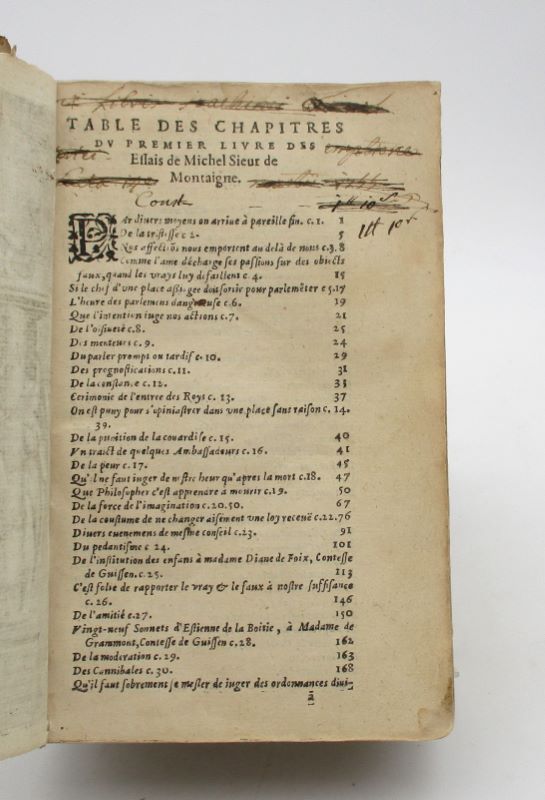 TABLE DES CHAPITRES
DV PREMIER LIVRE DES
Essais de Michel Sieur de
Montaigne.
Const
PAr divers moyens on arriue à pareille fin. c. 1. 1
De la tristesse c 2. 5
Nos affectiõs nous emportent au delà de nous c.3. 8
Comme l'ame décharge ses passions sur des obiects
faux, quand les vrays luy defaillent c. 4. 15
Si le chef d'une place assiegee doit sortir pour parlemẽter c 5. 17
L'heure des parlemens dangereuse c.6. 19
Que l'intention iuge nos actions c.7. 21
De l'oisiueté c.8. 25
Des menteurs c. 9. 24
Du parler prompt ou tardif c. 10. 29
Des prognostications c.11. 31
De la constance c. 12. 35
Cerimonie de l'entree des Roys c. 13. 37
On est puny pour s'opiniastrer dans vne place sans raison c. 14.
39.
De la punition de la couardise c. 15. 40
Vn traict de quelques Ambassadeurs c. 16. 41
De la peur c. 17. 45
Qu'il ne faut iuger de nostre heur qu'apres la mort c.18. 47
Que Philosopher c'est apprendre à mourir c.19. 50
De la force de l'imagination c.20.50. 67
De la coustume de ne changer aisement vne loy receuë c.22.76
Diuers euenemens de mesme conseil c.23. 91
Du pedantisme c 24. 101
De l'institution des enfans à madame Diane de Foix, Contesse
de Guissen. c. 25. 113
C'est folie de rapporter le vray & le faux à nostre suffisance
c. 26. 146
De l'amitié c.27. 150
Vingt-neuf Sonnets d'Estienne de la Boitie, à Madame de
Grammont, Contesse de Guissen c. 28. 162
De la moderation c. 29. 163
Des Cannibales c. 30. 168
Qu'il faut sobrement se mesler de iuger des ordonnances diui-
ã